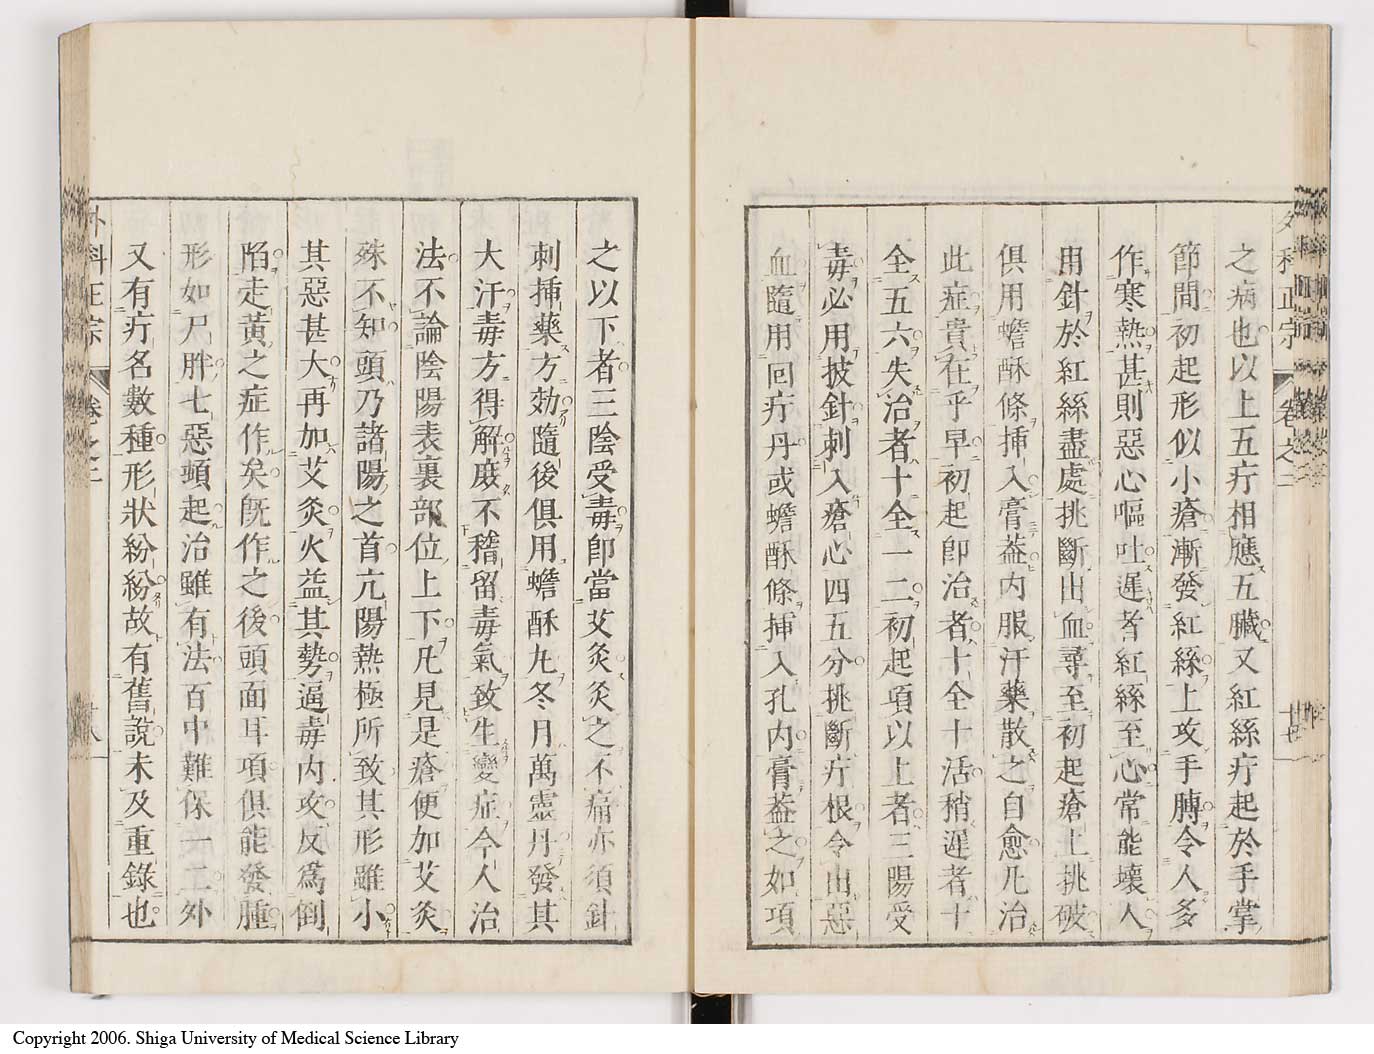 之病也以上五疔相應五臟又紅絲疔起於手掌
節間初起形似小瘡漸發紅絲上攻手膊令人多
作寒熱甚則惡心嘔吐遲者紅絲至心常能壞人
用針於紅絲盡處挑斷出血尋至初起瘡上挑破
俱用蟾酥條揷入膏葢內服汗藥散之自愈凡治
此症貴在乎早初起卽治者十全十活稍遲者十
全五六失治者十全一二初起項以上者三陽受
毒必用披針刺入瘡心四五分挑斷疔根令出惡
血隨用回疔丹或蟾酥條揷入孔內膏葢之如項
外科正宗 卷之二
之以下者三陰受毒卽當艾灸灸之不痛亦須針
刺揷藥方効隨後俱用蟾酥丸冬月萬靈丹發其
大汗毒方得解庶不稽留毒氣致生變症今人治
法不論陰陽表裏部位上下凡見是瘡便加艾灸
殊不知頭乃諸陽之首亢陽熱極所致其形雖小
其惡甚大再加艾灸火益其勢逼毒內攻反爲倒
陷走黃之症作矣旣作之後頭面耳項俱能發腫
形如尸胖七惡頓起治雖有法百中難保一二外
又有疔名數種形狀紛紛故有舊說未及重錄也
外科正宗 卷之二
Copyright 2006. Shiga University of Medical Science Library